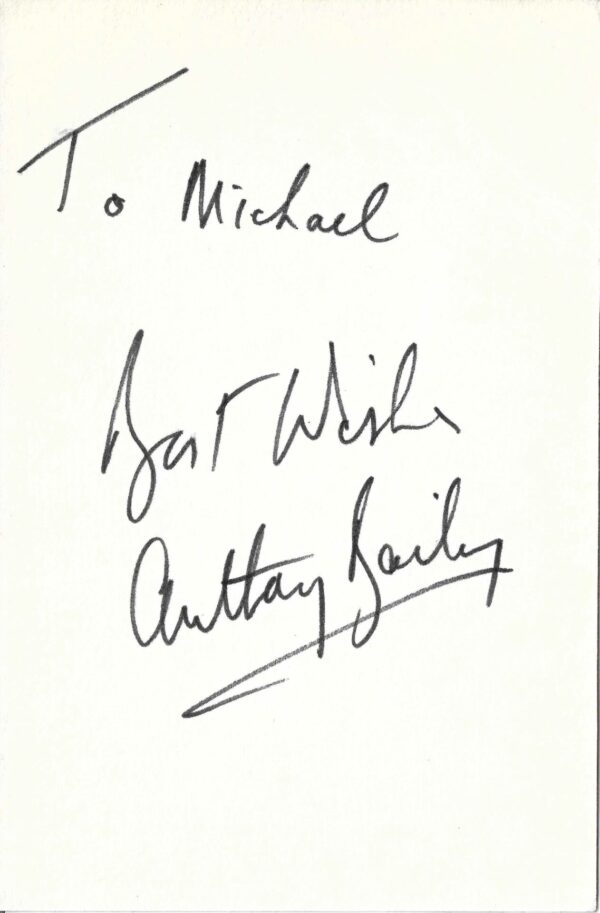 To Michael
Best Wishes
Anthony Bailey